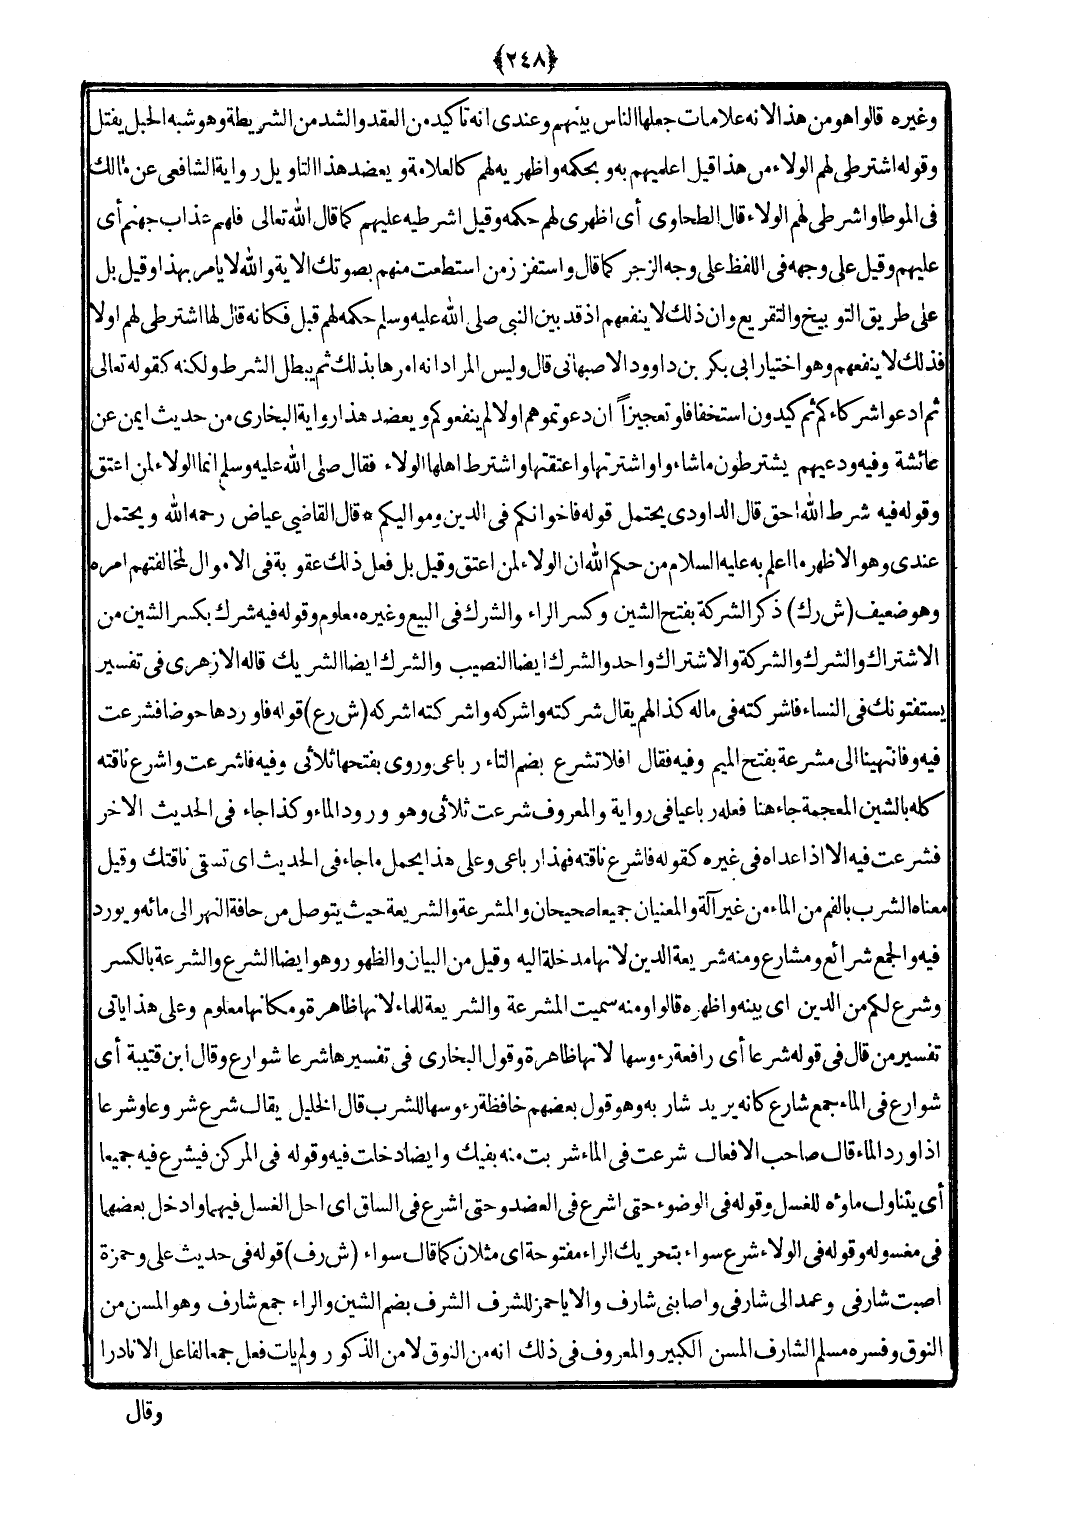 ﴿٢٤٨﴾
وغيره قالوا هو من هذا لانه علامات جعلها الناس بينهم وعندى انه تاكيد من العقد والشد من الشريطة وهو شبه الحبل يفتل
وقوله اشترطى لهم الولاء من هذا قيل اعلميهم به وبحكمه واظهريه لهم كالعلامة ويعضد هذا التاويل رواية الشافعى عن مالك
فى الموطا واشرطى لهم الولاء قال الطحاوى أى اظهرى لهم حكمه وقيل اشرطيه عليهم كما قال الله تعالى فلهم عذاب جهنم أى
عليهم وقيل على وجهه فى اللفظ على وجه الزجر كما قال واستفزز من استطعت منهم بصوتك الاية والله لا يامر بهذا وقيل بل
على طريق التوبيخ والتقريع وان ذلك لا ينفعهم اذ قد بين النبى صلى الله عليه وسلم حكمه لهم قبل فكانه قال لها اشترطى لهم اولا
فذلك لا ينفعهم وهو اختيار ابى بكر بن داوود الاصبهانى قال وليس المراد انه امرها بذلك ثم يبطل الشرط ولكنه كقوله تعالى
ثم ادعوا شركاءكم ثم كيدون استخفافا وتعجيزاً ان دعوتموهم اولا لم ينفعوكم ويعضد هذا رواية البخارى من حديث ايمن عن
عائشة وفيه ودعيهم يشترطون ما شاءوا واشترتها واعتقتها واشترط اهلها الولاء فقال صلى الله عليه وسلم انما الولاء لمن اعتق
وقوله فيه شرط الله احق قال الداودى يحتمل قوله فاخوانكم فى الدين ومواليكم * قال القاضى عياض رحمه الله ويحتمل
عندى وهو الاظهر ما اعلم به عليه السلام من حكم الله ان الولاء لمن اعتق وقيل بل فعل ذلك عقوبة فى الاموال لمخالفتهم امره
وهو ضعيف (ش رك) ذكر الشركة بفتح الشين وكسر الراء والشرك فى البيع وغيره معلوم وقوله فيه شرك بكسر الشين من
الاشتراك والشرك والشركة والاشتراك واحد والشرك ايضا النصيب والشرك ايضا الشريك قاله الازهرى فى تفسير
يستفتونك فى النساء فاشركته فى ماله كذا لهم يقال شركته واشركه واشركته اشركه (ش رع) قوله فاوردها حوضا فشرعت
فيه وفانتهينا الى مشرعة بفتح الميم وفيه فقال افلا تشرع بضم التاء رباعى وروى بفتحها ثلاثى وفيه فاشرعت واشرع ناقته
كله بالشين المعجمة جاء هنا فعله رباعيا فى رواية والمعروف شرعت ثلاثى وهو ورود الماء وكذا جاء فى الحديث الاخر
فشرعت فيه الا اذا عداه فى غيره كقوله فاشرع ناقته فهذا رباعى وعلى هذا يحمل ماجاء فى الحديث اى تسقى ناقتك وقيل
معناه الشرب بالفم من الماء من غير آلة والمعنيان جميعا صحيحان والمشرعة والشريعة حيث يتوصل من حافة النهر الى مائه ويورد
فيه والجمع شرائع ومشارع ومنه شريعة الدين لانها مدخلة اليه وقيل من البيان والظهور وهو ايضا الشرع والشرعة بالكسر
وشرع لكم من الدين اى بينه واظهره قالوا ومنه سميت المشرعة والشريعة للماء لانها ظاهرة ومكانها معلوم وعلى هذا ياتى
تفسير من قال فى قوله شرعا أى رافعة رءوسها لانها ظاهرة وقول البخارى فى تفسيرها شرعا شوارع وقال ابن قتيبة أى
شوارع فى الماء جمع شارع كانه يريد شاربه وهو قول بعضهم خافظة رءوسها للشرب قال الخليل يقال شرع شروعا وشرعا
اذا ورد الماء قال صاحب الافعال شرعت فى الماء شربت منه بفيك وايضا دخلت فيه وقوله فى المركن فيشرع فيه جميعا
أى يتناول ماؤه للغسل وقوله فى الوضوء حتى اشرع فى العضد وحتى اشرع فى الساق اى احل الغسل فيهما وادخل بعضهما
فى مغسوله وقوله فى الولاء شرع سواء بتحريك الراء مفتوحة اى مثلان كما قال سواء (ش رف) قوله فى حديث على وحمزة
اصبت شارفى وعمد الى شارفى واصابنى شارف والا ياحمز للشرف الشرف بضم الشين والراء جمع شارف وهو المسن من
النوق وفسره مسلم الشارف المسن الكبير والمعروف فى ذلك انه من النوق لا من الذكور ولم يات فعل جمعا لفاعل الا نادرا
وقال